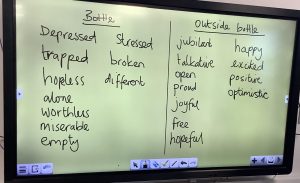 Bottle
Depressed Stressed
trapped broken
hopeless different
alone
worthless
miserable
empty
outside bottle
jubilant happy
talkative excited
open positive
proud optimistic
joyful
free
hopeful